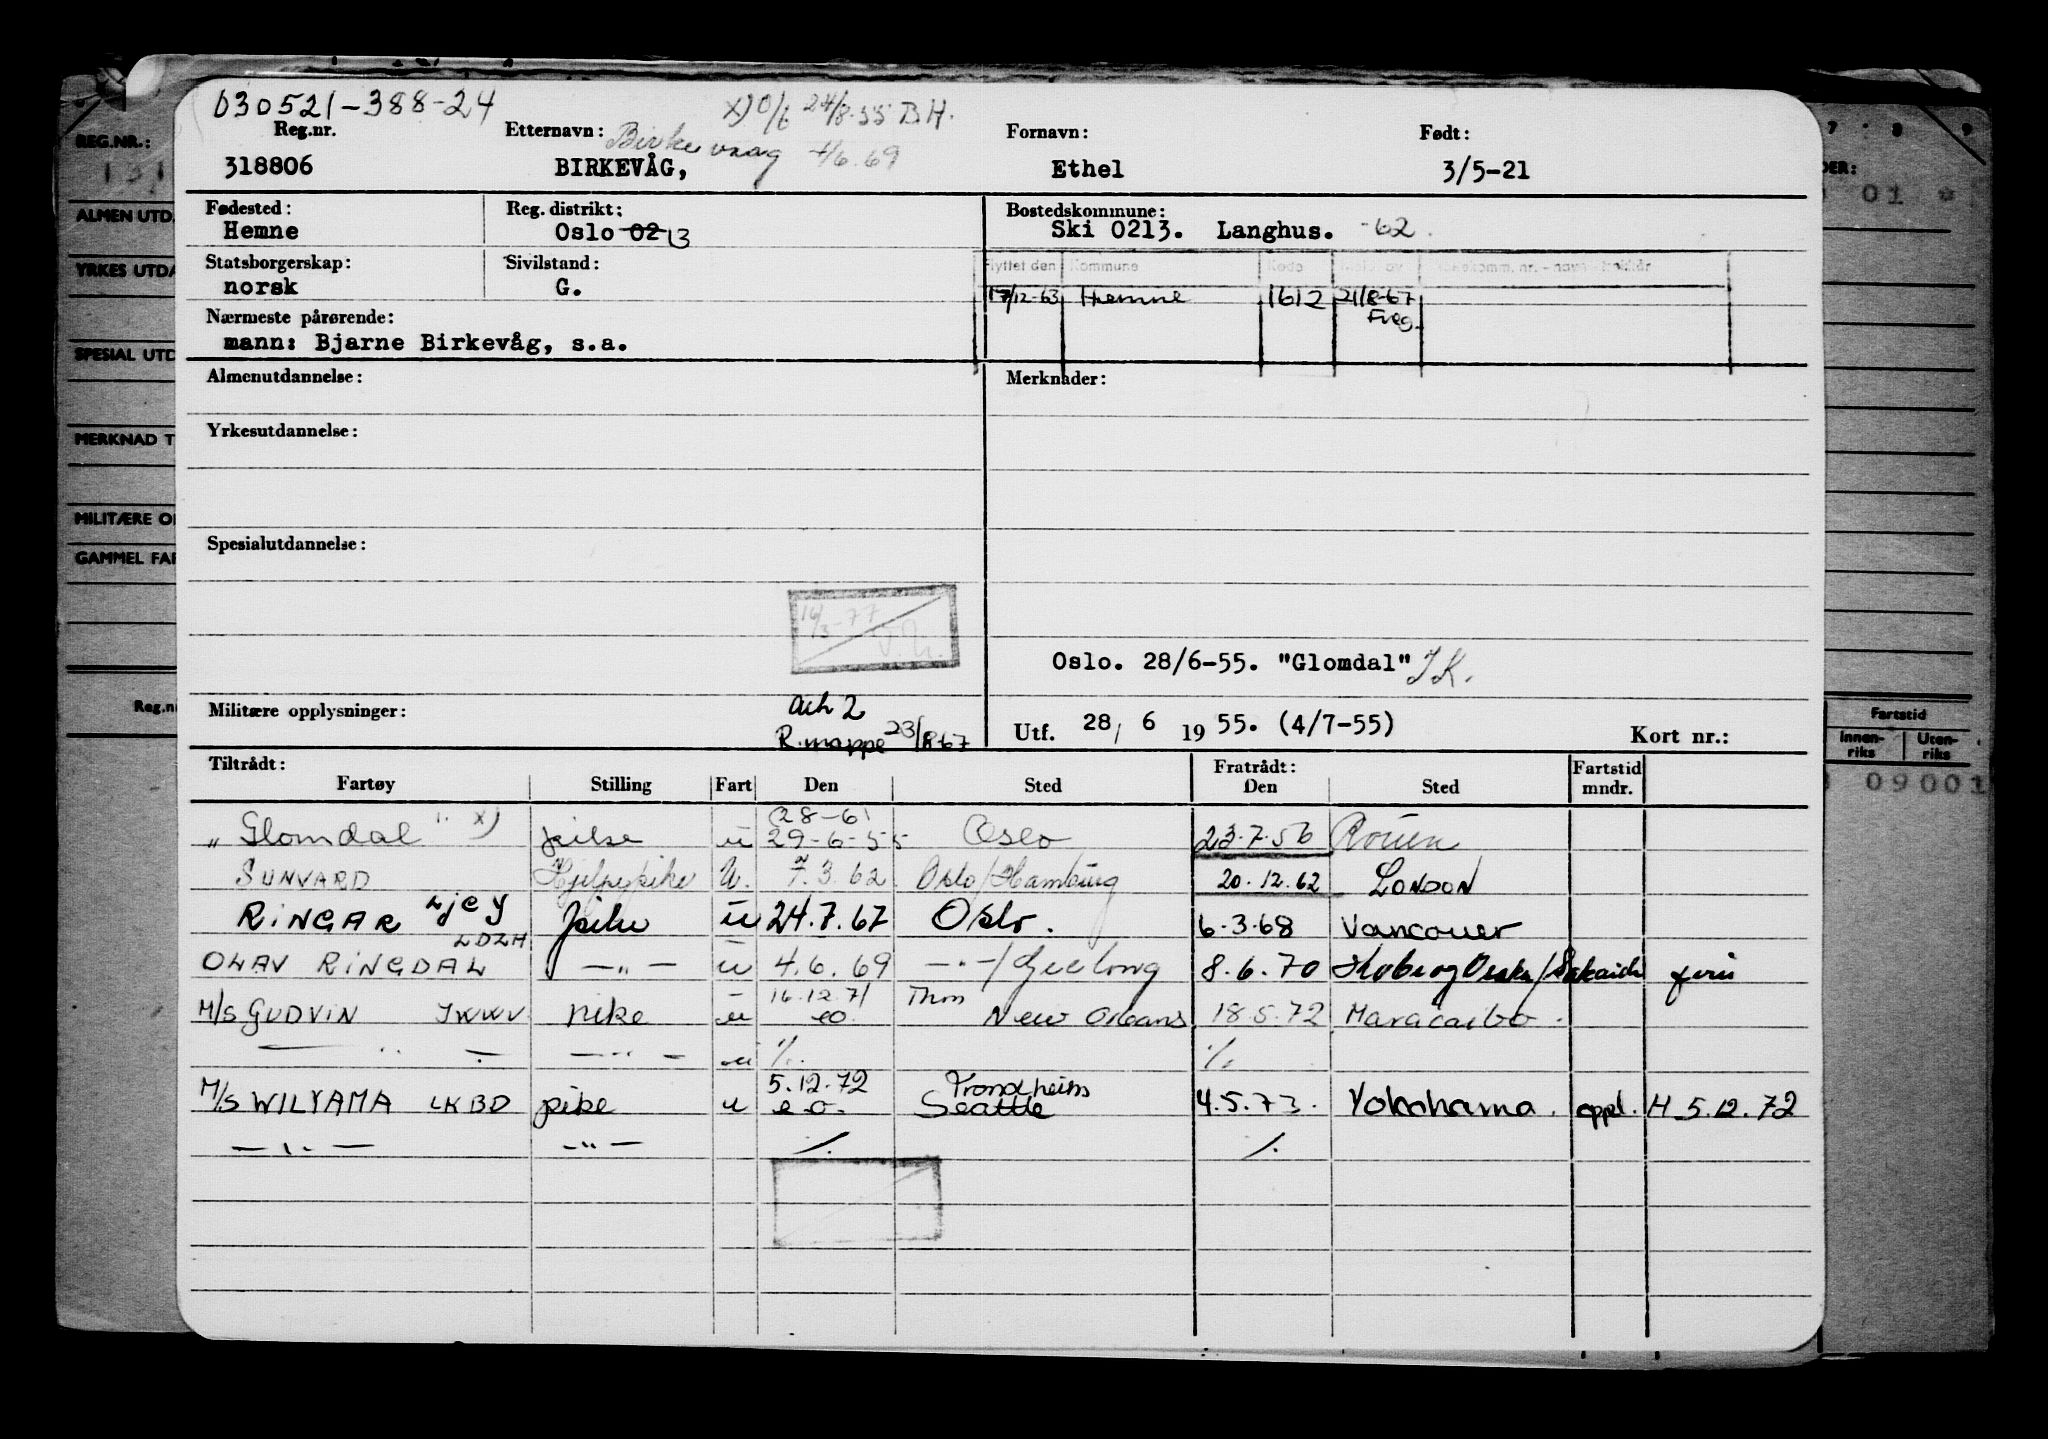 030521-388-24
x) 0/6 24/8-55 B.H.
Reg.nr. Etternavn: Birkevaag 4/6.69 Fornavn: Født:
318806 BIRKEVÅG, Ethel 3/5-21
Fødested: Reg. distrikt: Bostedskommune:
Hemne Oslo 02 13 Ski 0213. Langhus. -62.
Statsborgerskap: Sivilstand: Flyttet den Kommune Kode
norsk G. 17/12-63 Hemne 1612 21/8-67
Freg.
Nærmeste pårørende:
mann: Bjarne Birkevåg, s.a.
Almenutdannelse: Merknader:
Yrkesutdannelse:
Spesialutdannelse:
16/3-77
Oslo. 28/6-55. "Glomdal" J.K.
Militære opplysninger: Ark 2
R.mappe 23/8-67
Utf. 28/ 6 1955. (4/7-55) Kort nr.:
Tiltrådt: Fratrådt: Fartstid
Fartøy Stilling Fart Den Sted Den Sted mndr.
(28-6)
"Glomdal" x) pike u 29-6-55 Oslo 23.7.56 Rouen
SUNVARD Hjelpepike U. 7.3.62 Oslo/Hamburg 20.12.62 LONDON
RINGAR LJCY pike u 24.7.67 Oslo. 6.3.68 Vancouver
LDZH
OLAV RINGDAL —"— u 4.6.69 —"—/Geelong 8.6.70 Kobe og Osaka/Sakaide ferie
16.12.71 Thm
M/S GUDVIN JWWV pike u eo. New Orleans 18.5.72 Maracaibo.
—"— —"— u ./. ./.
5.12.72 Trondheim
M/S WILYAMA LKBD pike u e.o. Seattle 4.5.73. Yokohama. oppl. H 5.12.72
—"— —"— ./. ./.
REG.NR.:
ALMEN UTD.
YRKES UTDA
SPESIAL UTD
MERKNAD T
MILITÆRE O
GAMMEL FAR
Reg.n
7 8 9
DER:
01 *
Fartstid
Innen-
riks Uten-
riks
09001